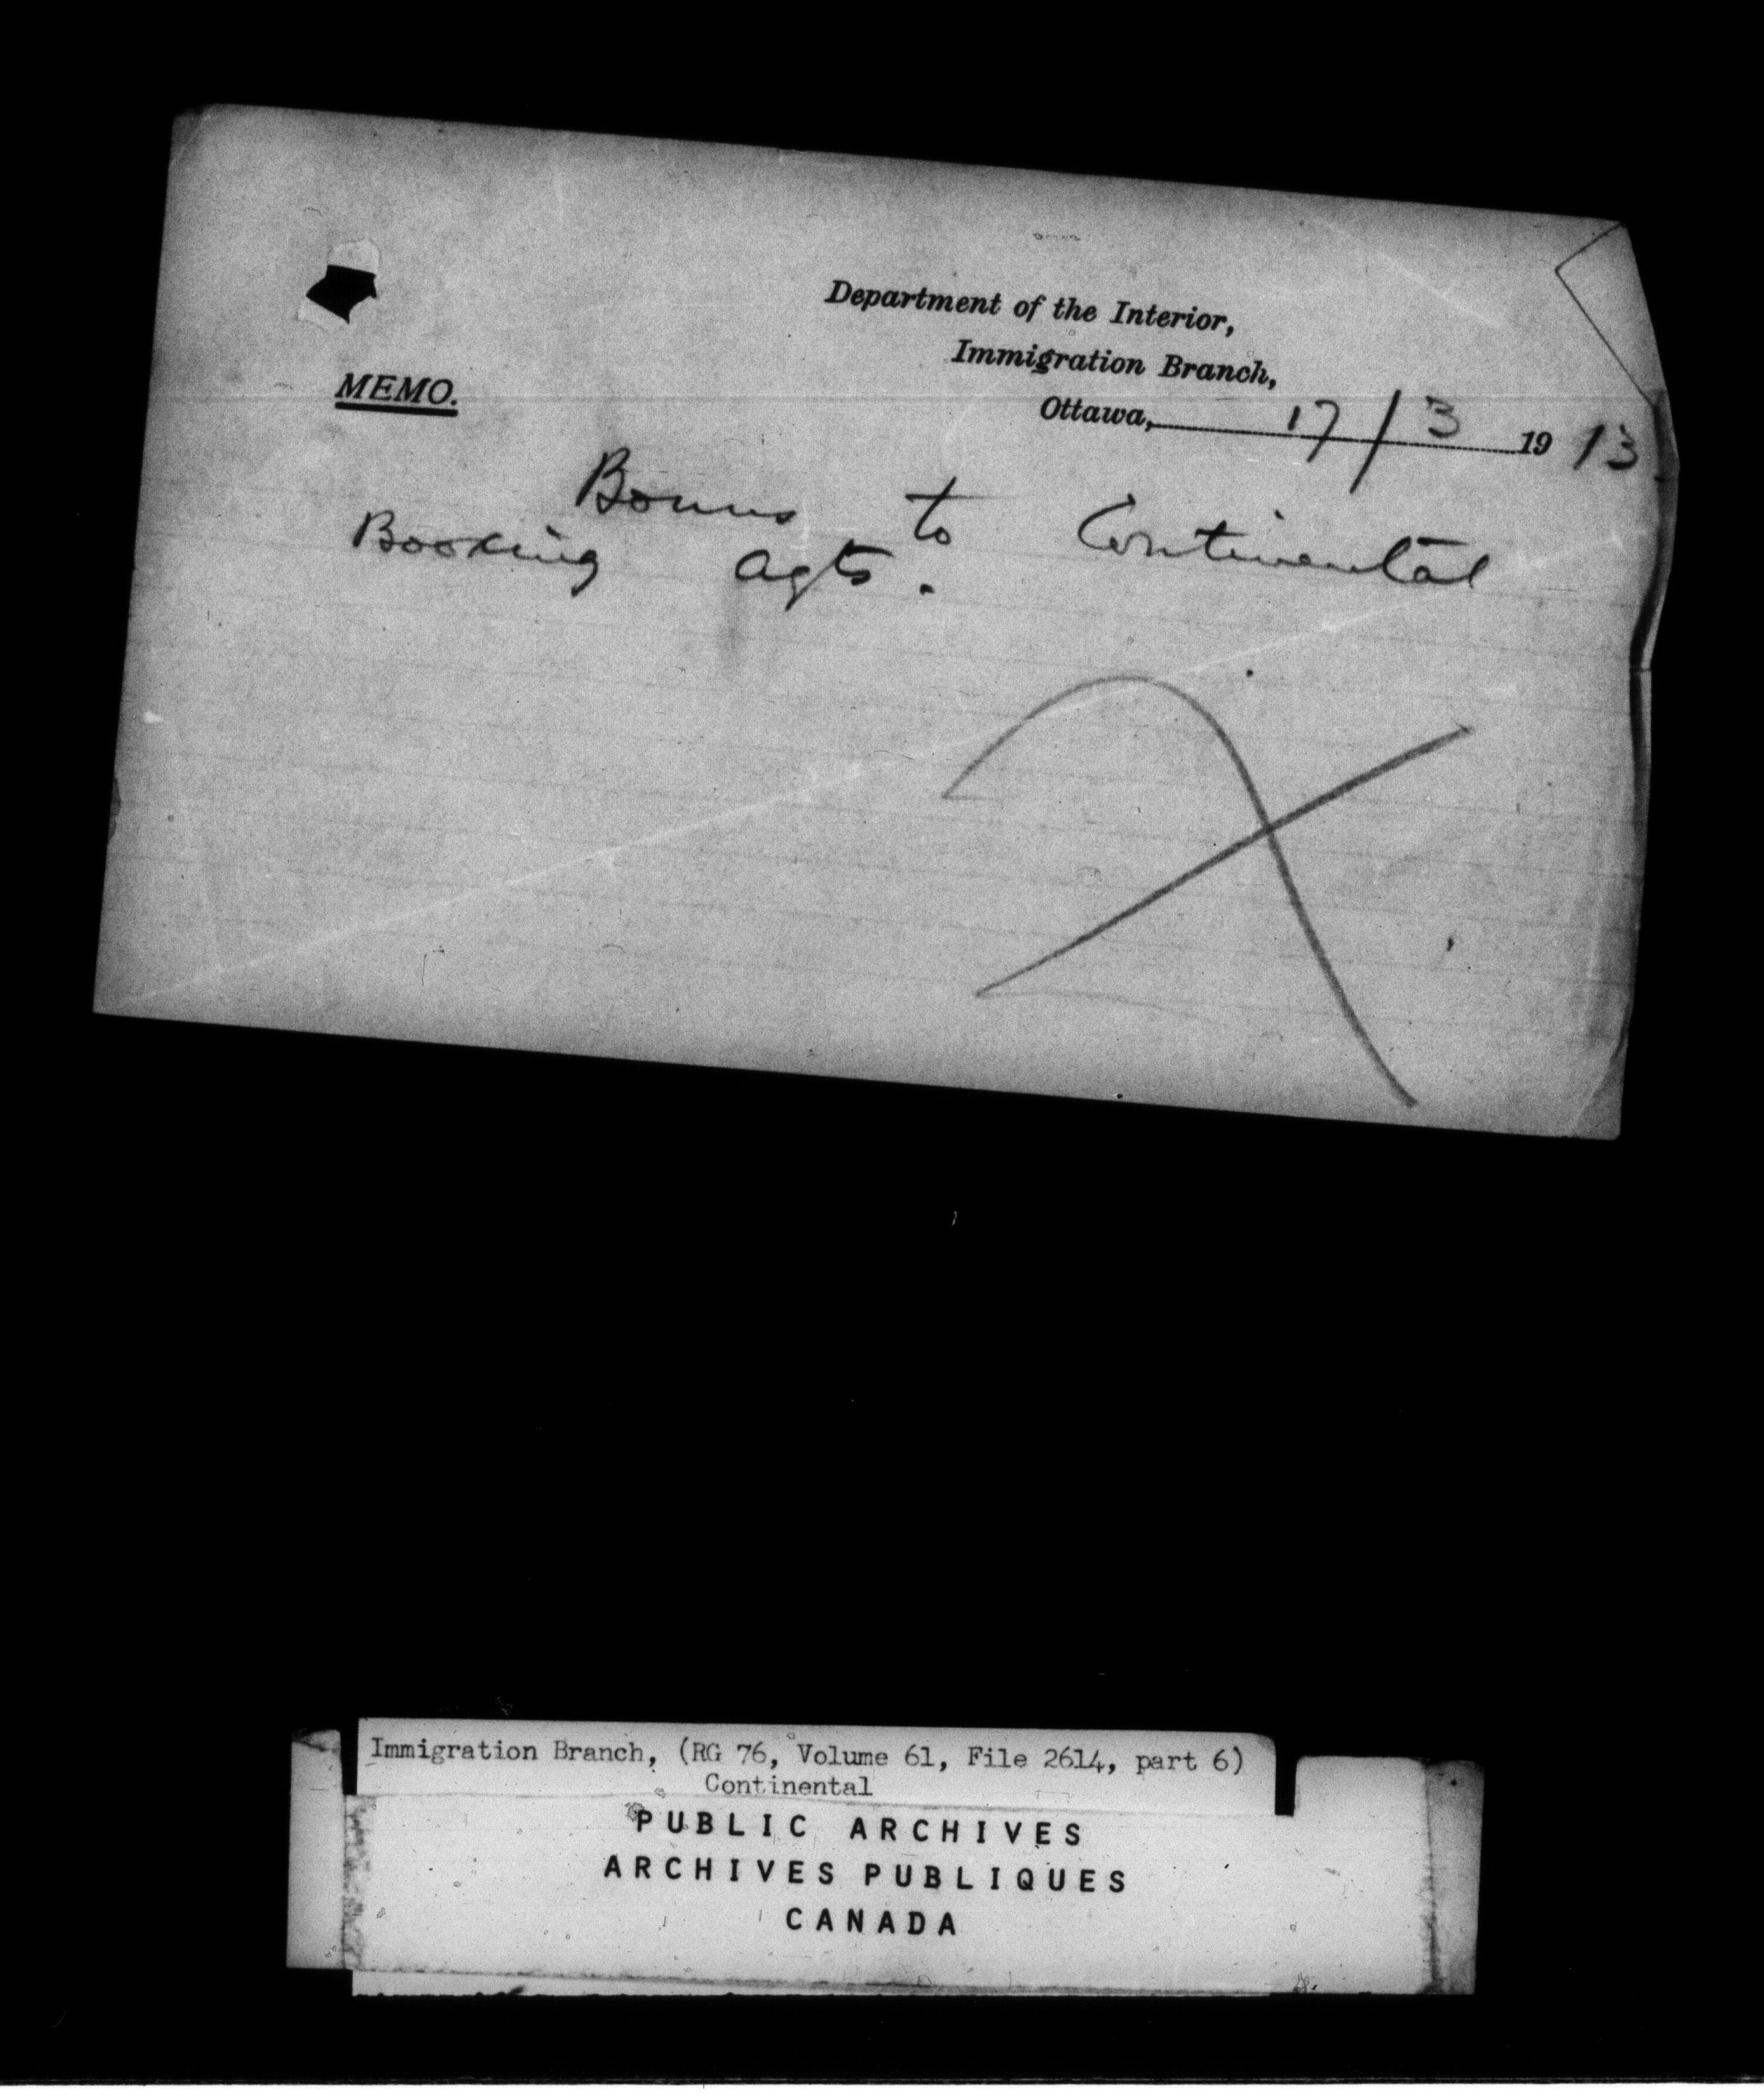 Department of the Interior,
Immigration Branch,
MEMO.
Ottawa, 17/3 19 13
Bonus to Continental
Booking Agts.
Immigration Branch, (RG 76, Volume 61, File 2614, part 6)
Continental
PUBLIC ARCHIVES
ARCHIVES PUBLIQUES
CANADA